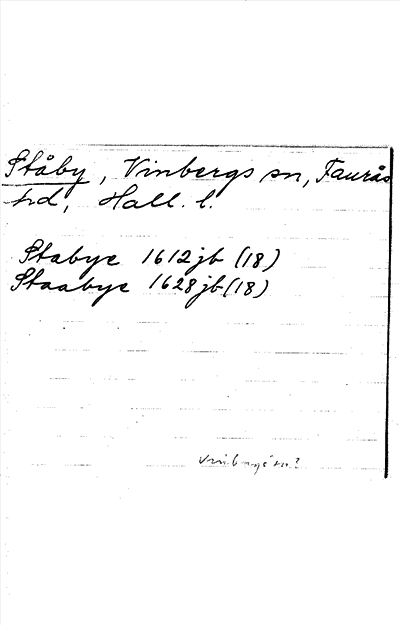 Ståby, Vinbergs sn, Faurås
hd, Hall. l.
Stabye 1612 jb (18)
Staabye 1628 jb (18)
Vinbergs sn?